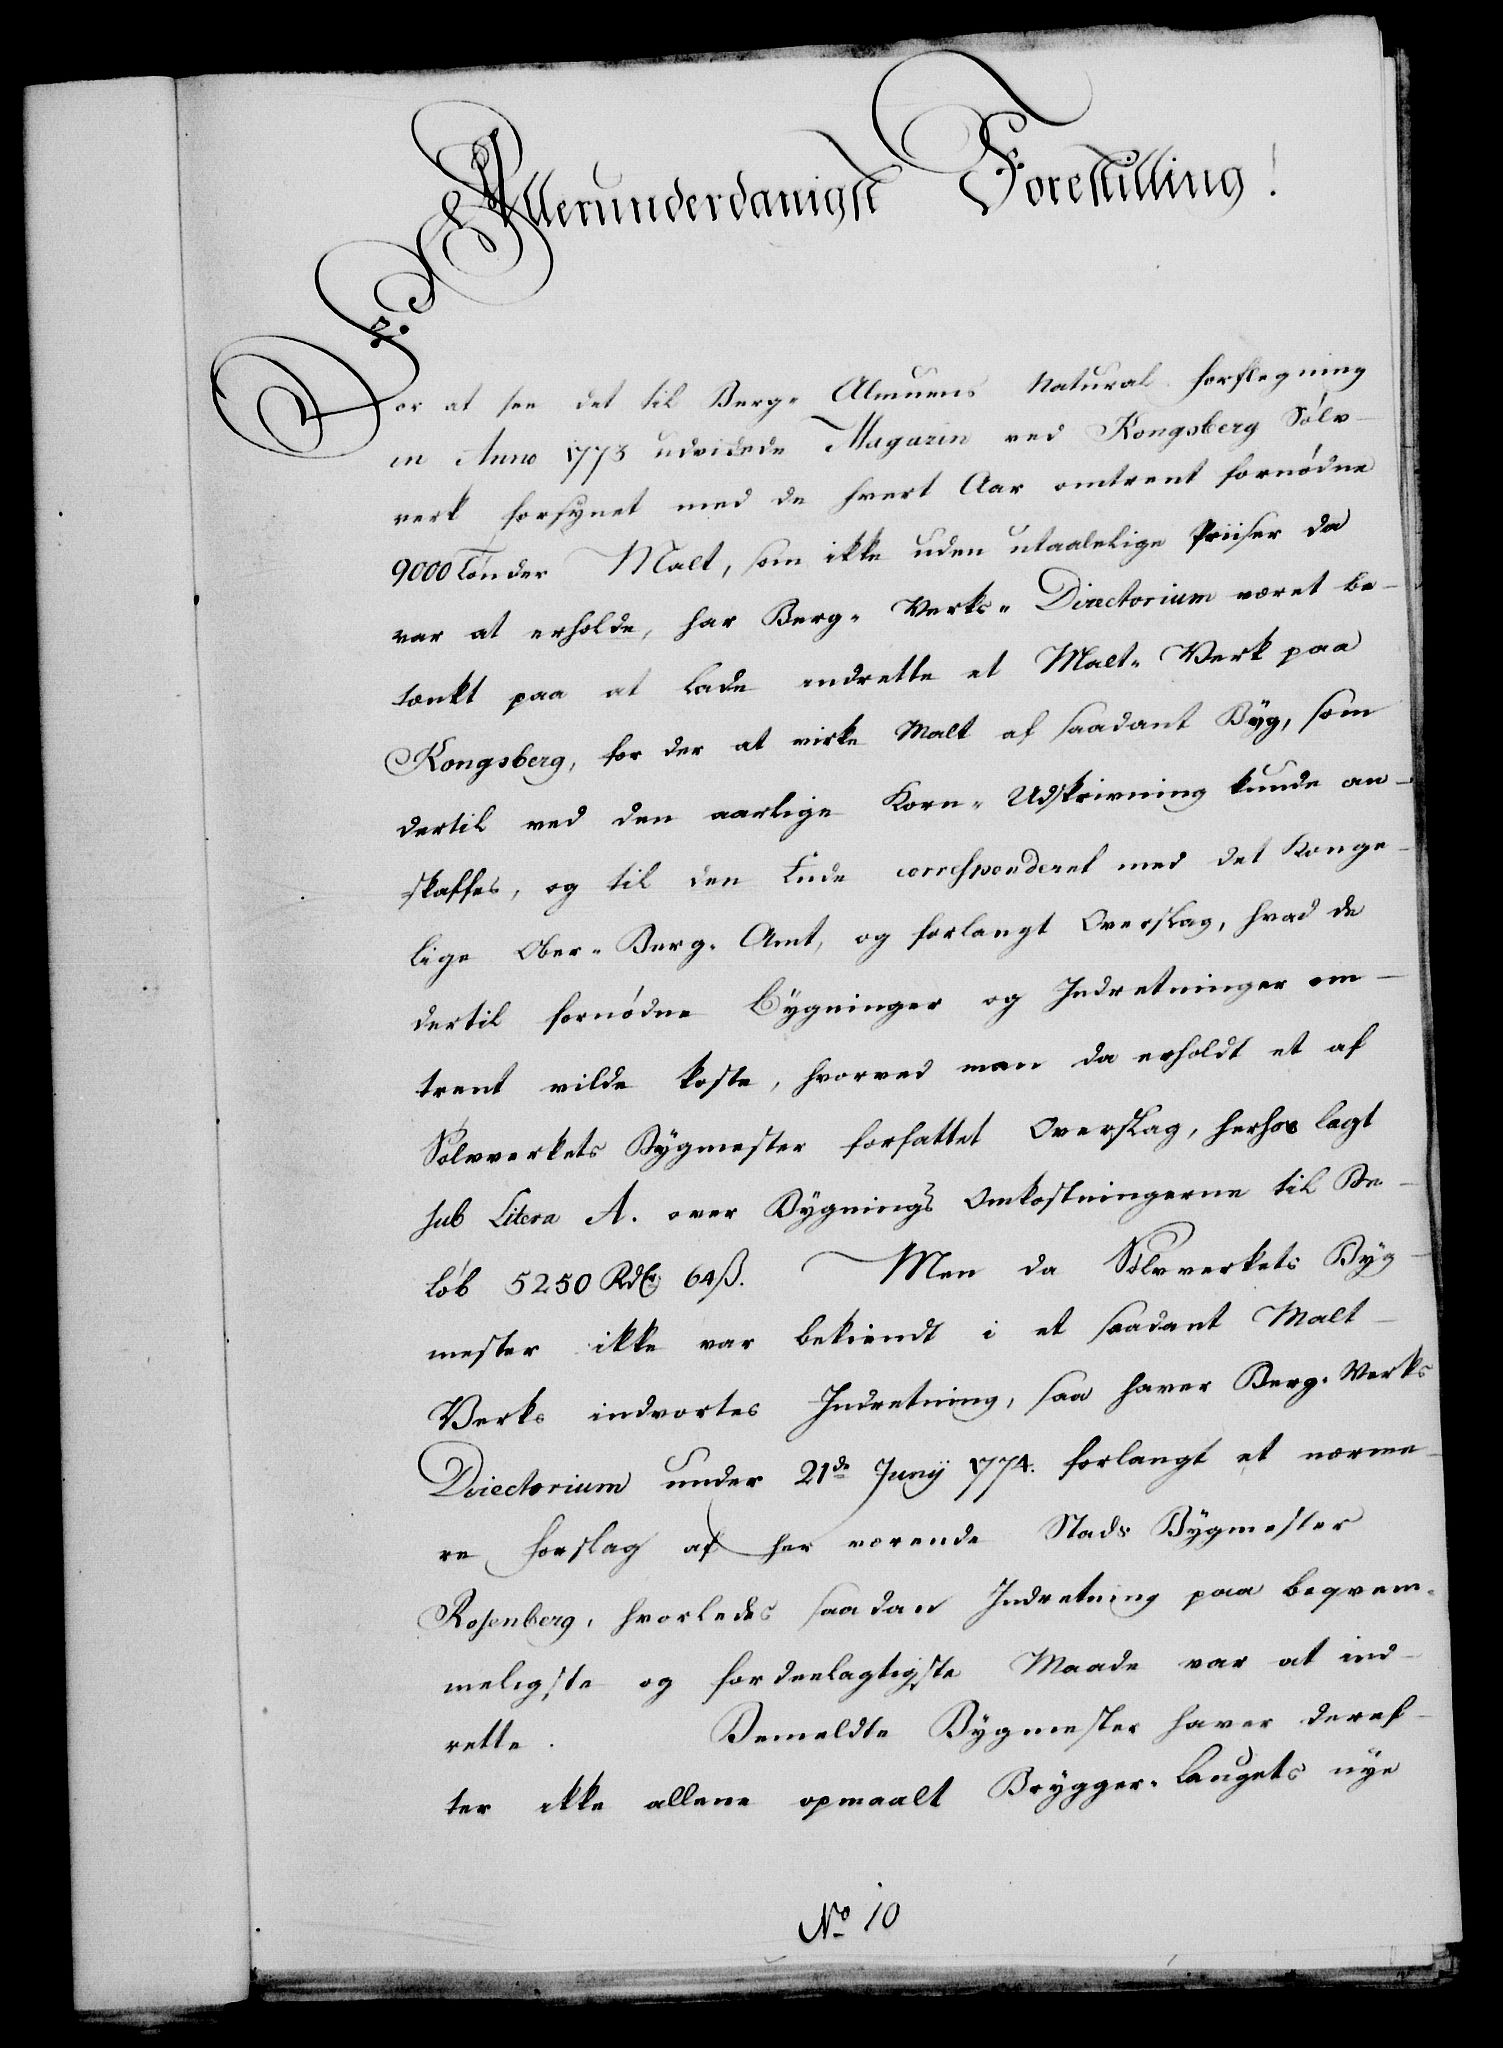 Allerunderdanigst Forestilling!
For at see det til Berg- Almuens Natural forflegning
in Anno 1773 udvidede Magazin ved Kongsberg Sølv-
verk forsÿnet med de hvert Aar omtrent fornødne
9000 Tønder Malt, som ikke uden utaalelige Priiser da
var at erholde, har Berg- Verks- Directorium været be-
tænkt paa at lade indrette et Malt- Verk paa
Kongsberg, for der at virke Malt af saadant Bÿg, som
dertil ved den aarlige Korn- Udskrivning kunde an-
skaffes, og til den Ende correspenderet med det Konge-
lige Ober- Berg- Amt, og forlangt Overslag, hvad de
dertil fornødne Bÿgninger og Indretninger om-
trent vilde koste, hvorved man da erholdt et af
Sølvverkets Bÿgmester forfattet Overslag, herhos lagt
sub Litera A. over Bÿgnings Omkostningerne til Be-
løb 5250 Rdlr 64 ß. Men da Sølvverkets Bÿg-
mester ikke var bekiendt i et saadant Malt-
Verks indvortes Indretning, saa haver Berg- Verks
Directorium under 21de Junÿ 1774. forlangt et nærme-
re forslag af her værende Stads Bÿgmester
Rosenberg, hvorledes saadan Indretning paa beqvem-
meligste og fordeelagtigste Maade var at ind-
rette. Bemeldte Bÿgmester haver deref-
ter ikke allene opmaalt Brÿgger- Laugets nÿe
No 10